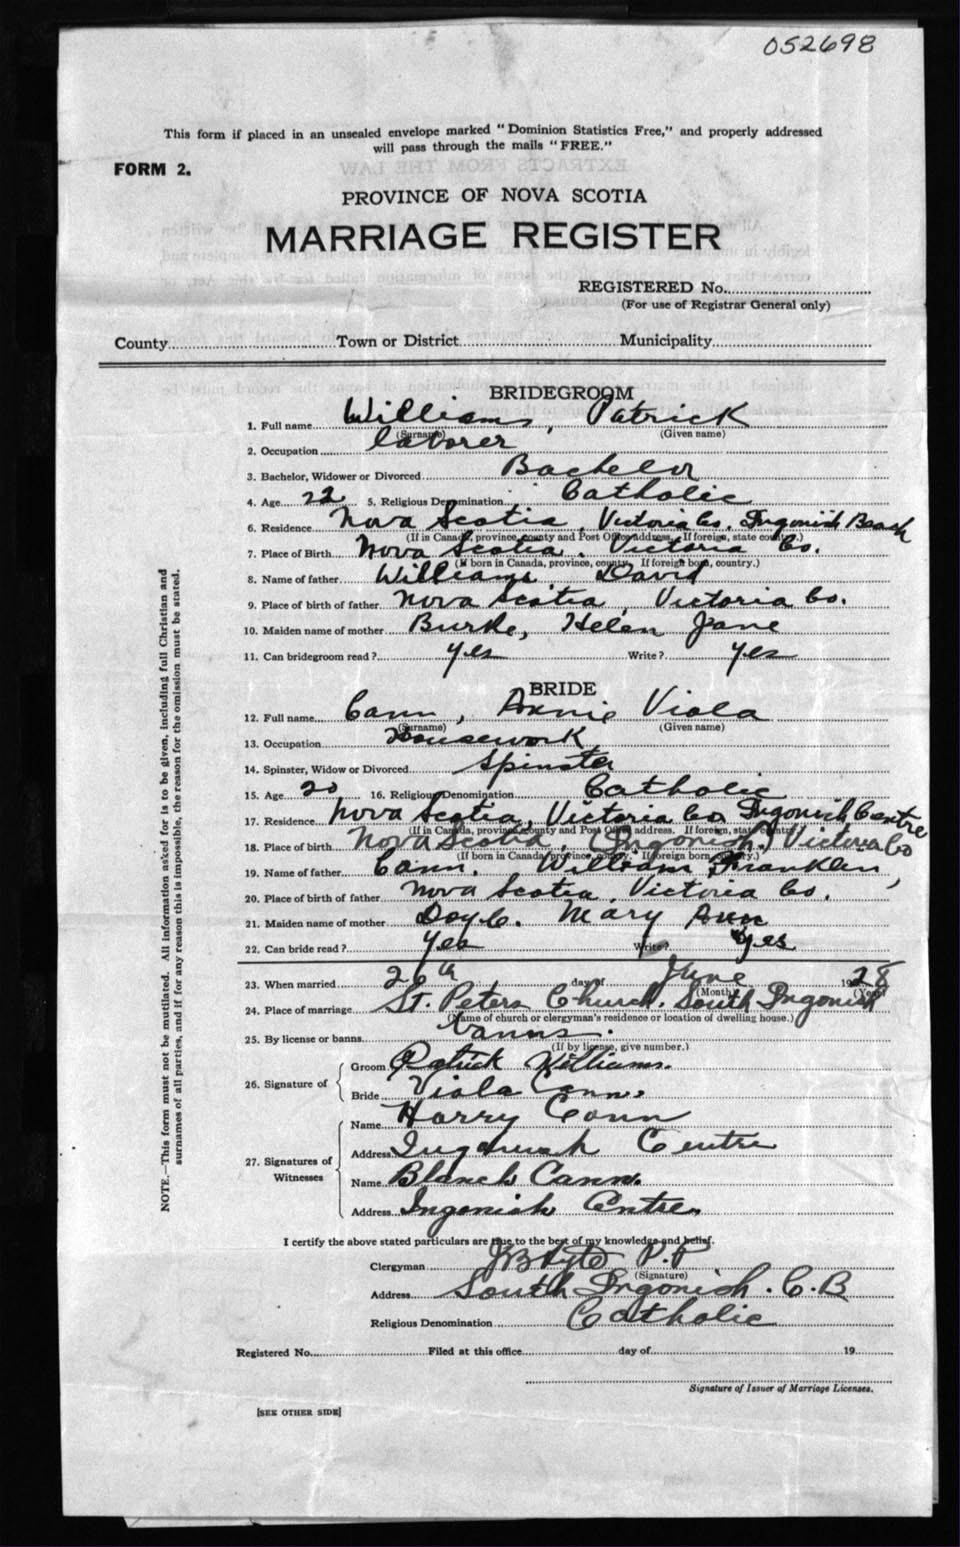 052698
This form if placed in an unsealed envelope marked "Dominion Statistics Free," and properly addressed
will pass through the mails "FREE."
FORM 2.
PROVINCE OF NOVA SCOTIA
MARRIAGE REGISTER
REGISTERED No.
(For use of Registrar General only)
County Town or District Municipality
BRIDEGROOM
1. Full name Williams, Patrick
(Surname) (Given name)
2. Occupation laborer
3. Bachelor, Widower or Divorced Bachelor
4. Age 22 5. Religious Denomination Catholic
6. Residence Nova Scotia, Victoria Co. Ingonish Beach
(If in Canada, province, county and Post Office address. If foreign, state country.)
7. Place of Birth Nova Scotia. Victoria Co.
(If born in Canada, province, county. If foreign born, country.)
8. Name of father Williams, David
9. Place of birth of father Nova Scotia, Victoria Co.
10. Maiden name of mother Burke, Helen Jane
11. Can bridegroom read? yes Write? yes
BRIDE
12. Full name Cann, Annie Viola
(Surname) (Given name)
13. Occupation Housework
14. Spinster, Widow or Divorced Spinster
15. Age 20 16. Religious Denomination Catholic
17. Residence Nova Scotia, Victoria Co Ingonish Centre
(If in Canada, province, county and Post Office address. If foreign, state country.)
18. Place of birth Nova Scotia, (Ingonish) Victoria Co
(If born in Canada, province, county. If foreign born, country.)
19. Name of father Cann. William Franklin,
20. Place of birth of father Nova Scotia, Victoria Co.
21. Maiden name of mother Doyle. Mary Ann
22. Can bride read? Yes Write? Yes
23. When married 26th day of June 1928
(Month) (Year)
24. Place of marriage St. Peters Church. South Ingonish
(Name of church or clergyman's residence or location of dwelling house.)
25. By license or banns banns.
(If by license, give number.)
26. Signature of Groom Patrick Williams.
Bride Viola Cann.
27. Signatures of Witnesses Name Harry Cann
Address Ingonish Centre
Name Blanch Cann.
Address Ingonish Centre.
I certify the above stated particulars are true to the best of my knowledge and belief.
Clergyman P.P
(Signature)
Address South Ingonish. C.B
Religious Denomination Catholic
Registered No. Filed at this office day of 19
Signature of Issuer of Marriage Licenses.
[SEE OTHER SIDE]
NOTE.—This form must not be mutilated. All information asked for is to be given, including full Christian and
surnames of all parties, and if for any reason this is impossible, the reason for the omission must be stated.